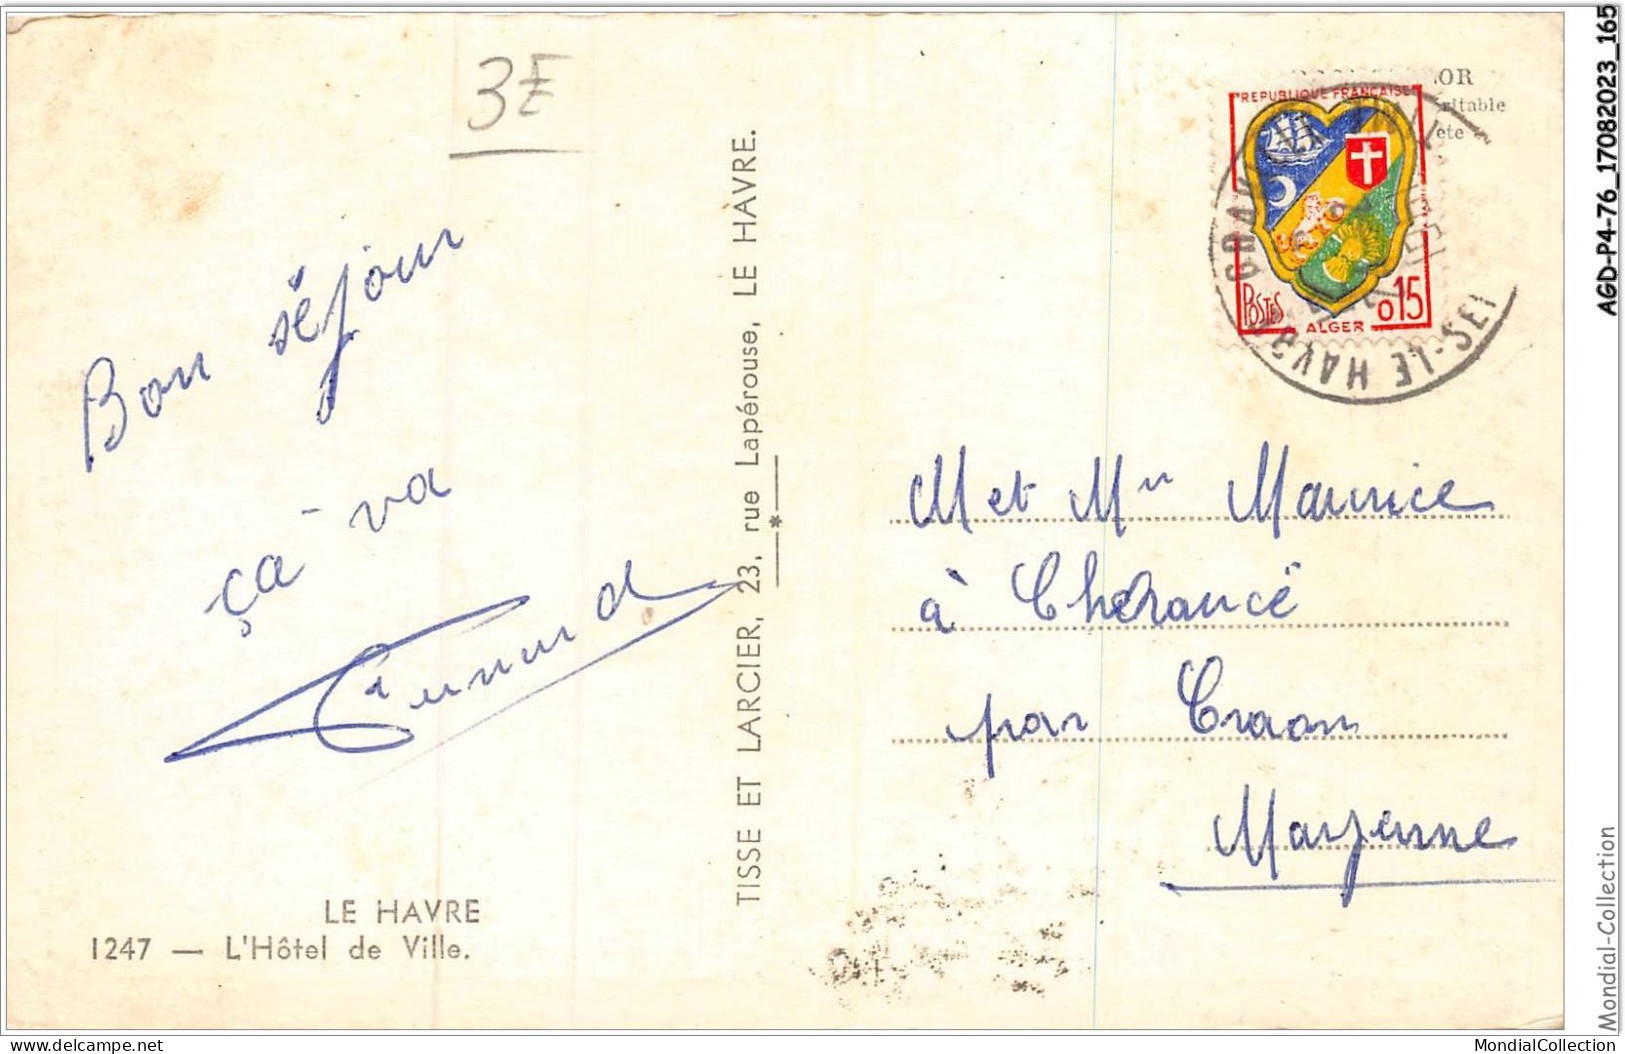 3E
OR
ritable
ete
REPUBLIQUE FRANÇAISE
POSTES
0,15
ALGER
S-LE HAV
Bon séjour
ça va
TISSE ET LARCIER, 23, rue Lapérouse, LE HAVRE.
M et Mme Maurice
à Chérancé
par Craon
Mayenne
LE HAVRE
1247 — L'Hôtel de Ville.
AGD-P4-76_17082023_165
Mondial-Collection
delcampe.net
MondialCollection